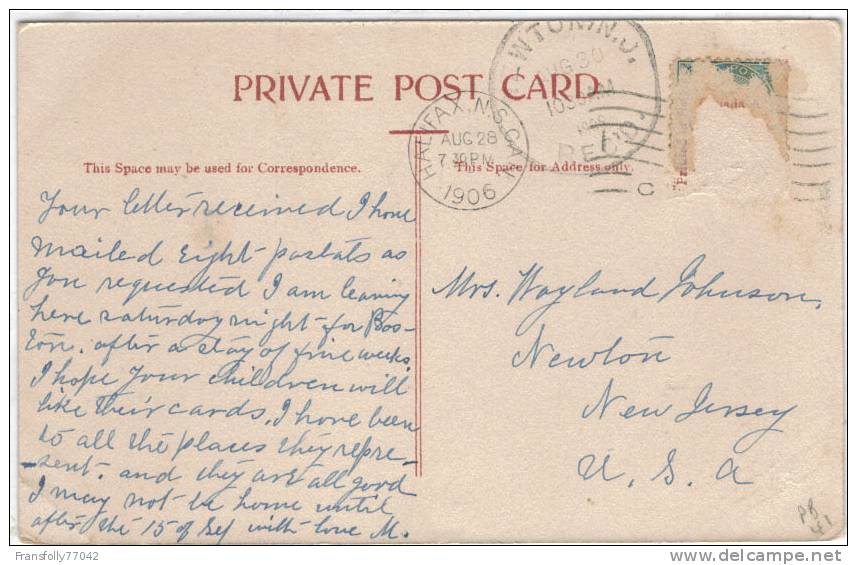 PRIVATE POST CARD
HALIFAX, N.S. CAN
AUG 28
7 30 PM
1906
AUG 30
10 AM
REC'D.
C
This Space may be used for Correspondence.
This Space for Address only.
Your letter received I have
mailed eight postals as
you requested I am leaving
here saturday night for Bos-
ton. after a stay of five weeks.
I hope your children will
like their cards. I have been
to all the places they repre-
-sent. and they are all good
I may not be home until
after the 15 of Sep with love M.
Mrs. Wayland Johnson,
Newton
New Jersey
U. S. A
Fransfolly77042
delcampe.net